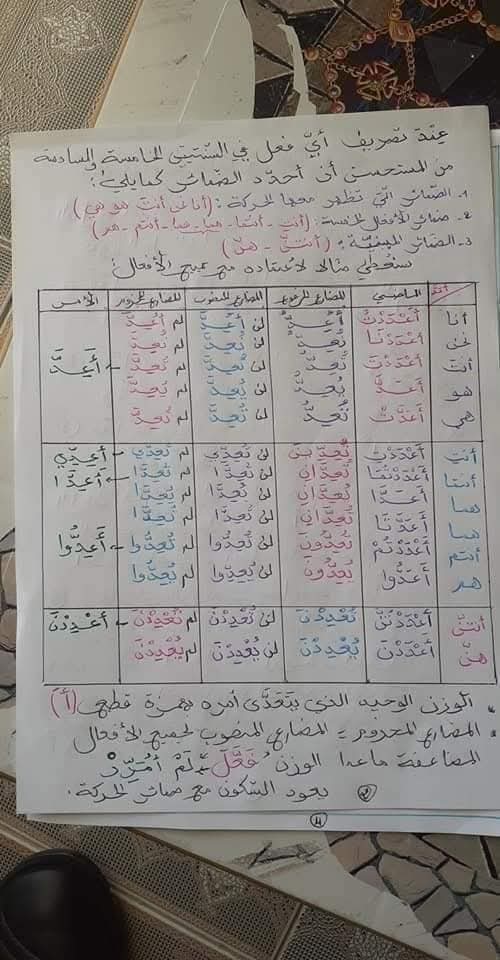 عند تصريف أيّ فعل في السنتين الخامسة والسادسة
من المستحسن أن أحدد الضمائر كمايلي:
1- الضمائر التي تظهر معها الحركة: (أنا نحن أنت هو هي)
2- ضمائر الأفعال الخمسة: (أنتِ - أنتما - هما - هما - أنتم - هم)
3- الضمائر المبنيّة: (أنتنّ - هنّ)
سنعطي مثالا لاعتماده مع جميع الأفعال:
الماضي المضارع المرفوع المضارع المنصوب المضارع المجزوم الأمر
أنا أَعْدَدْتُ أُعِدُّ لن أُعِدَّ لم أُعِدَّ
نحن أَعْدَدْنَا نُعِدُّ لن نُعِدَّ لم نُعِدَّ
أنتَ أَعْدَدْتَ تُعِدُّ لن تُعِدَّ لم تُعِدَّ أَعِدَّ
هو أَعَدَّ يُعِدُّ لن يُعِدَّ لم يُعِدَّ
هي أَعَدَّتْ تُعِدُّ لن تُعِدَّ لم تُعِدَّ
أنتِ أَعْدَدْتِ تُعِدِّينَ لن تُعِدِّي لم تُعِدِّي أَعِدِّي
أنتما أَعْدَدْتُمَا تُعِدَّانِ لن تُعِدَّا لم تُعِدَّا أَعِدَّا
هما أَعَدَّا يُعِدَّانِ لن يُعِدَّا لم يُعِدَّا
هما أَعَدَّتَا تُعِدَّانِ لن تُعِدَّا لم تُعِدَّا
أنتم أَعْدَدْتُمْ تُعِدُّونَ لن تُعِدُّوا لم تُعِدُّوا أَعِدُّوا
هم أَعَدُّوا يُعِدُّونَ لن يُعِدُّوا لم يُعِدُّوا
أنتنّ أَعْدَدْتُنَّ تُعْدِدْنَ لن تُعْدِدْنَ لم تُعْدِدْنَ أَعْدِدْنَ
هنّ أَعْدَدْنَ يُعْدِدْنَ لن يُعْدِدْنَ لم يُعْدِدْنَ
* الوزن الوحيد الذي يتعدّى أمره بهمزة قطعها (أَ)
* المضارع المجزوم = المضارع المنصوب لجميع الأفعال
المضاعفة ماعدا الوزن فَعَّلَ لَمْ أُمَرِّرْ
يعود السّكون مع ضمائر الحركة.